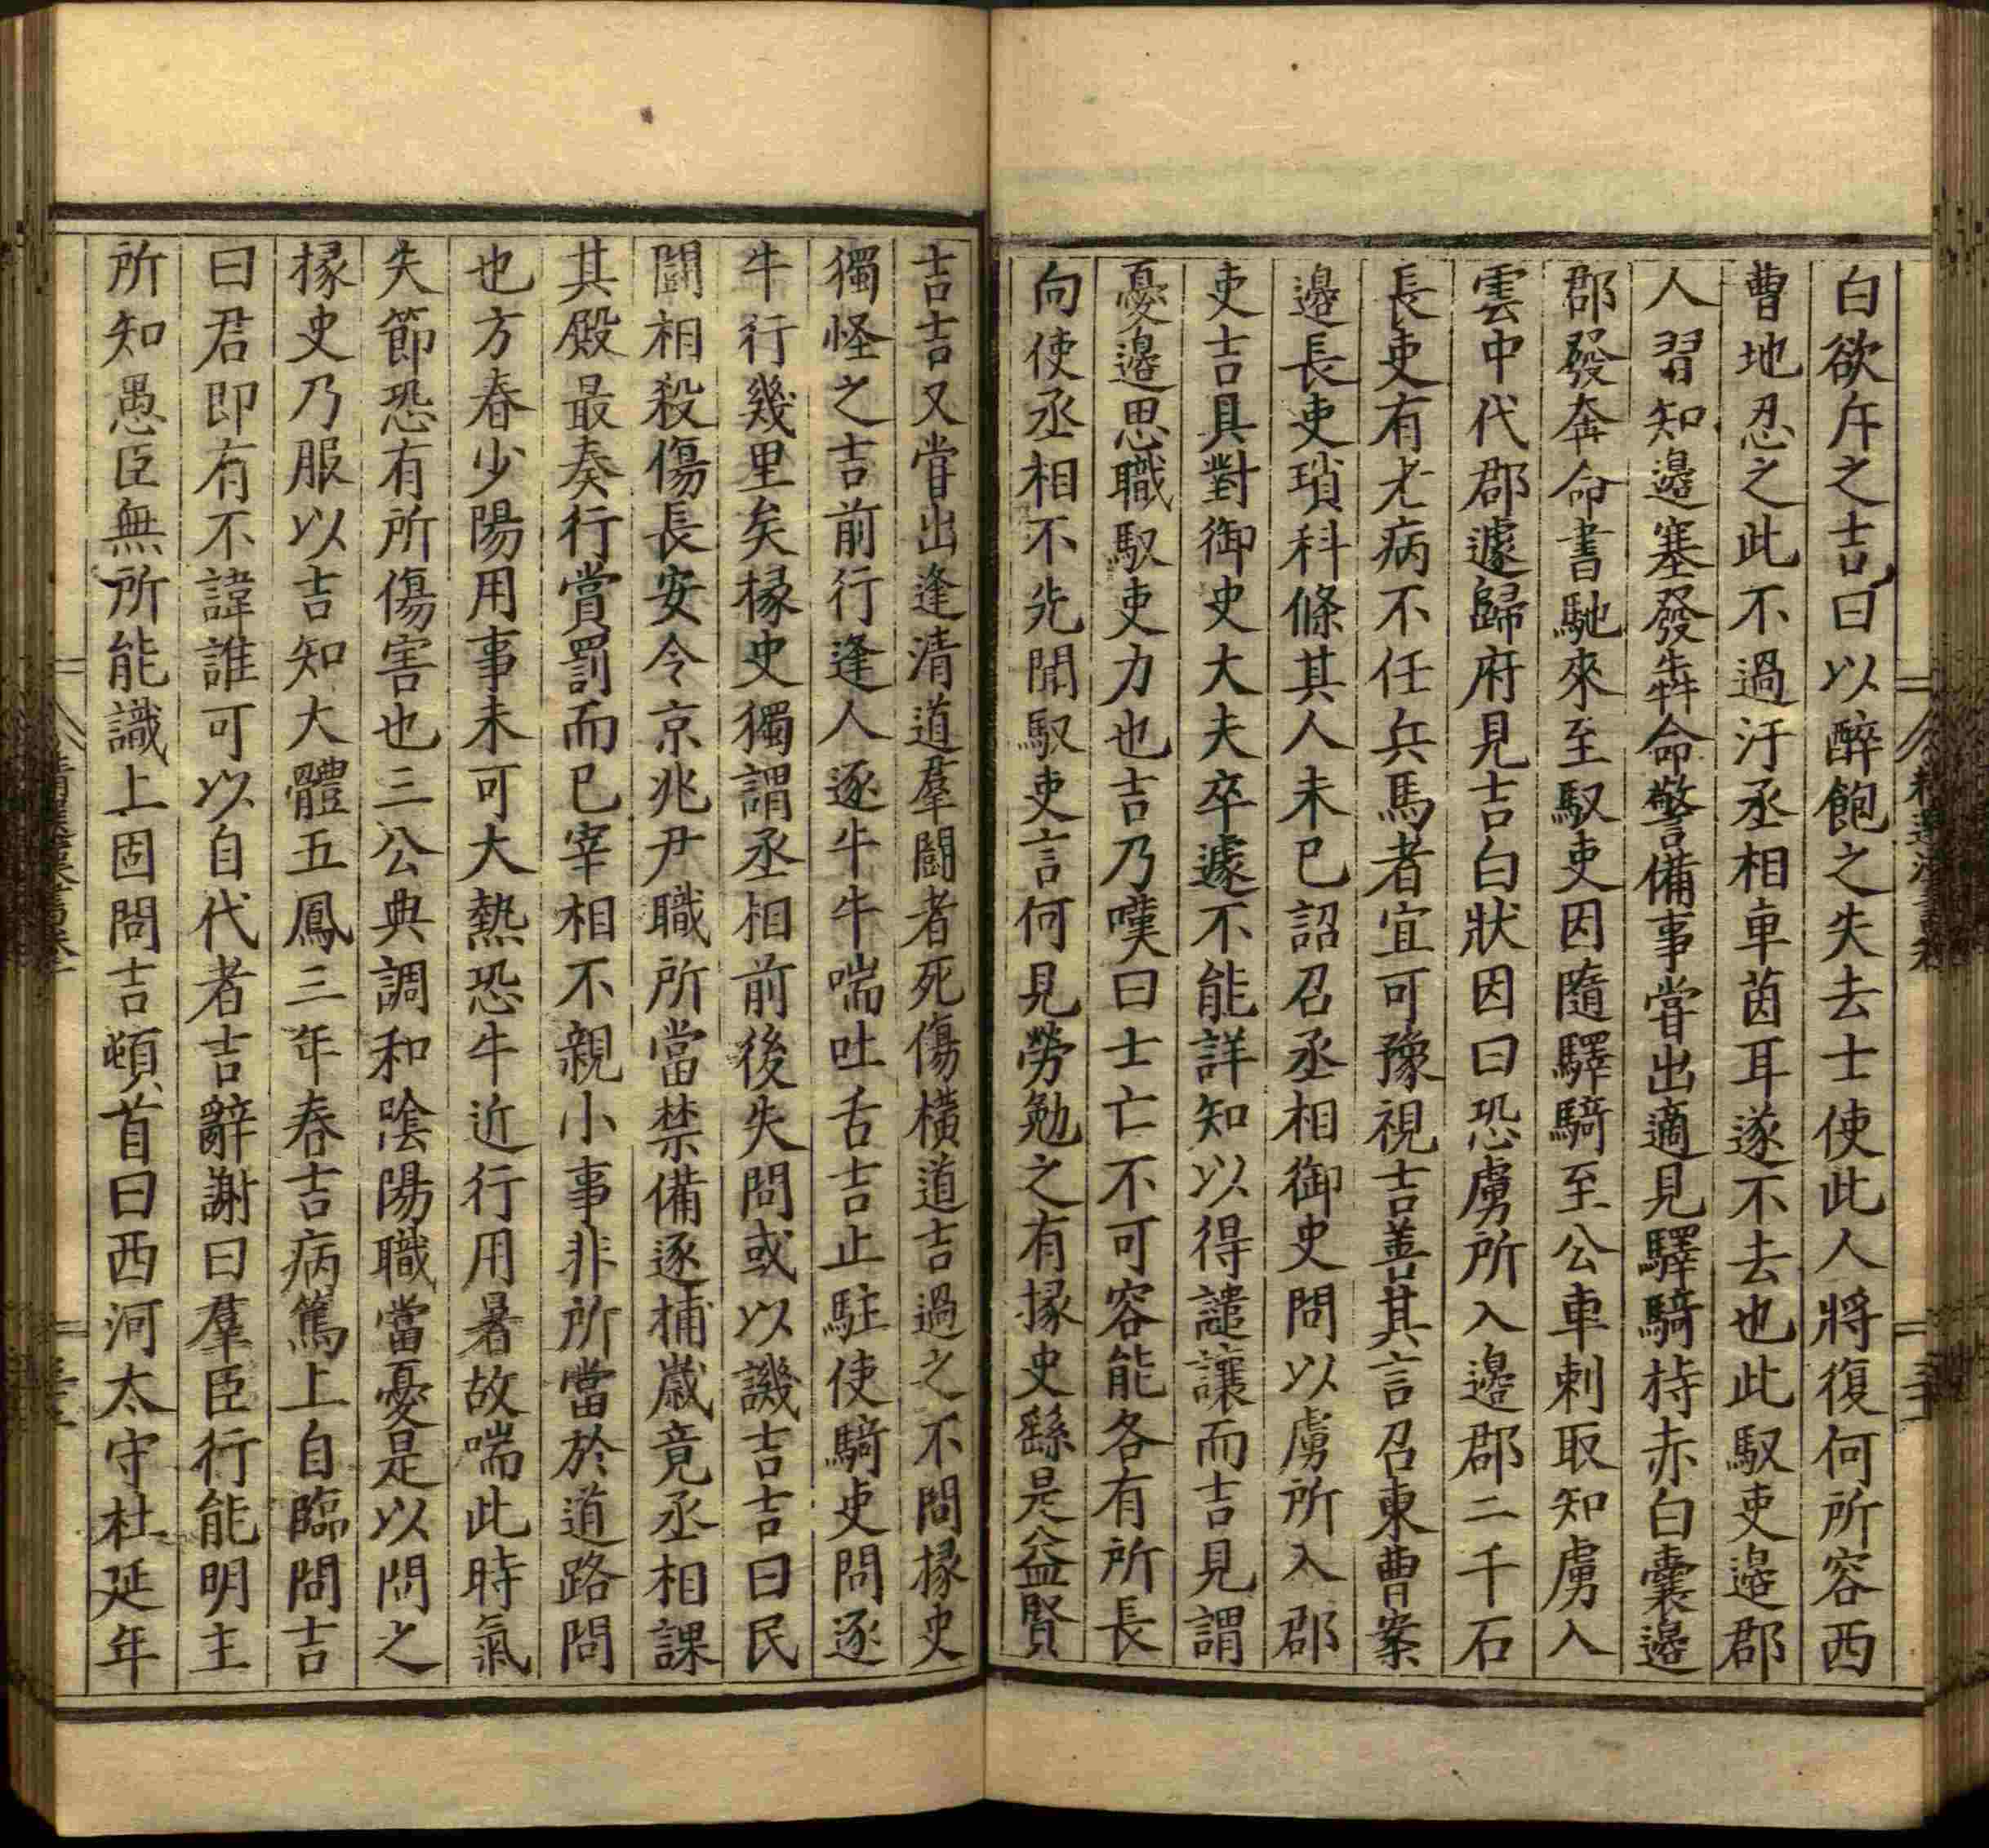 白欲斥之吉曰以醉飽之失去士使此人將復何所容西
曹地忍之此不過汙丞相車茵耳遂不去也此馭吏邊郡
人習知邊塞發犇命警備事嘗出適見驛騎持赤白囊邊
郡發奔命書馳來至馭吏因隨驛騎至公車刺取知虜入
雲中代郡遽歸府見吉白狀因曰恐虜所入邊郡二千石
長吏有老病不任兵馬者宜可豫視吉善其言召東曹案
邊長吏瑣科條其人未已詔召丞相御史問以虜所入郡
吏吉具對御史大夫卒遽不能詳知以得譴讓而吉見謂
憂邊思職馭吏力也吉乃嘆曰士亡不可容能各有所長
向使丞相不先聞馭吏言何見勞勉之有掾史繇是益賢
吉吉又嘗出逢清道羣鬭者死傷橫道吉過之不問掾史
獨怪之吉前行逢人逐牛牛喘吐舌吉止駐使騎吏問逐
牛行幾里矣掾史獨謂丞相前後失問或以譏吉吉曰民
鬭相殺傷長安令京兆尹職所當禁備逐捕歲竟丞相課
其殿最奏行賞罰而已宰相不親小事非所當於道路問
也方春少陽用事未可大熱恐牛近行用暑故喘此時氣
失節恐有所傷害也三公典調和陰陽職當憂是以問之
掾史乃服以吉知大體五鳳三年春吉病篤上自臨問吉
曰君即有不諱誰可以自代者吉辭謝曰羣臣行能明主
所知愚臣無所能識上固問吉頓首曰西河太守杜延年